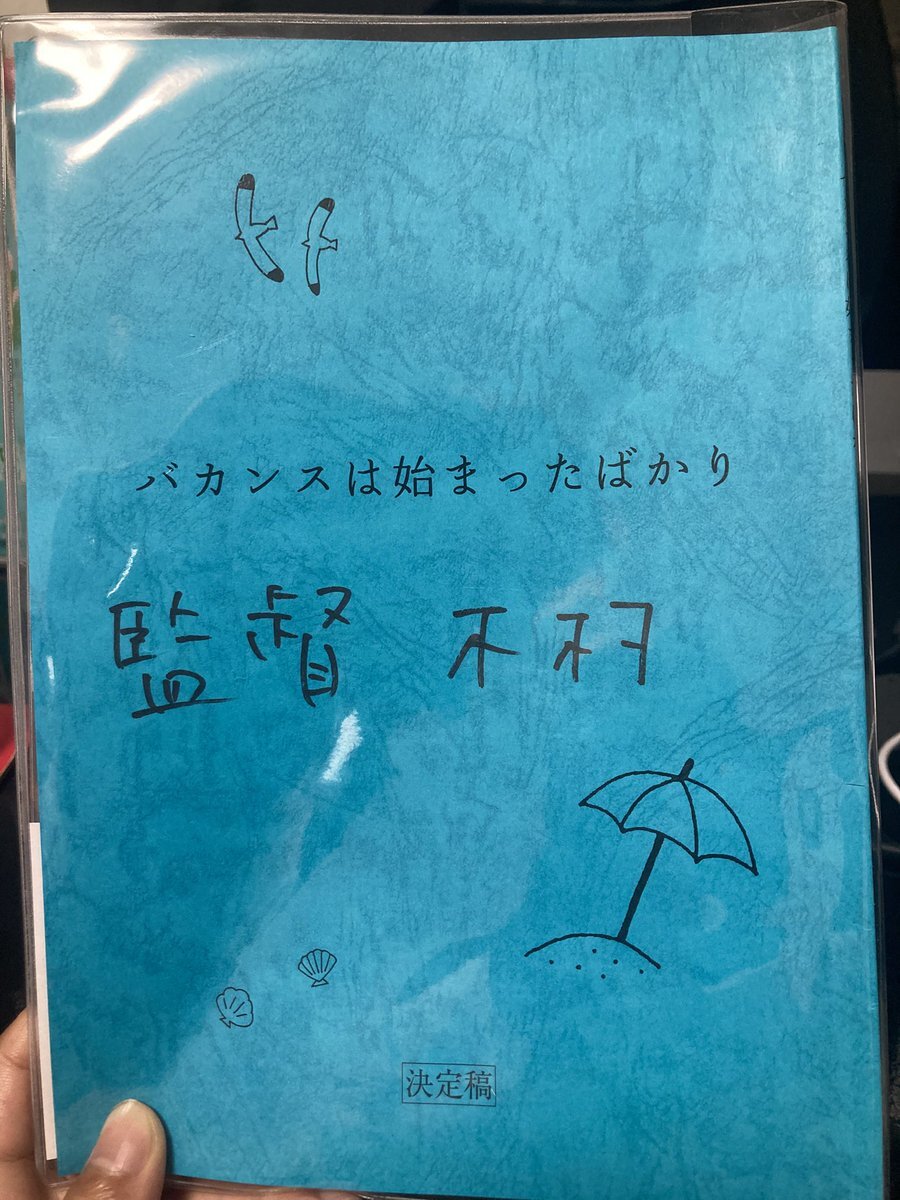 バカンスは始まったばかり
監督 木村
決定稿